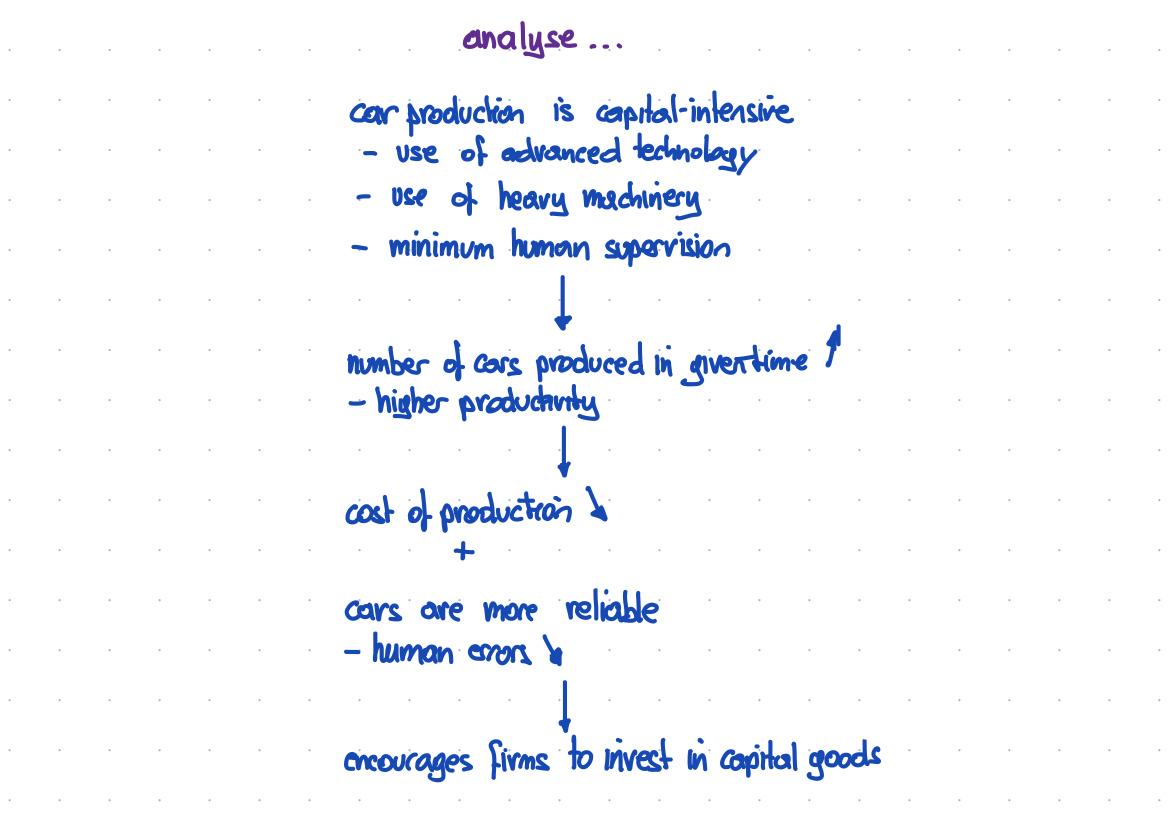 analyse ...
car production is capital-intensive
- use of advanced technology
- use of heavy machinery
- minimum human supervision
↓
number of cars produced in given time ↑
- higher productivity
↓
cost of production ↘
+
cars are more reliable
- human errors ↘
↓
encourages firms to invest in capital goods